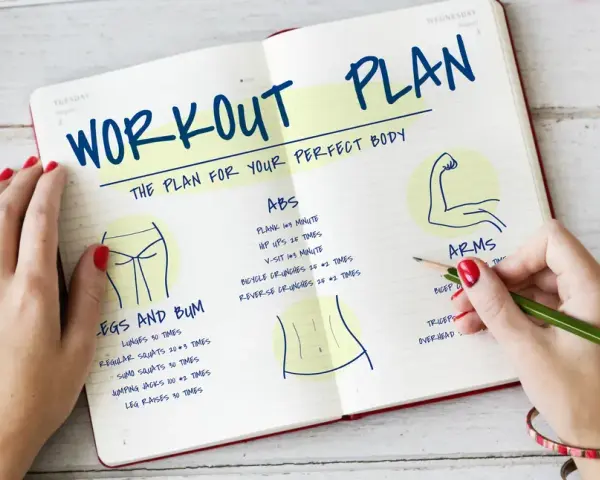 TUESDAY
WEDNESDAY
WORKOUT PLAN
THE PLAN FOR YOUR PERFECT BODY
ABS
PLANK 1*3 MINUTE
HIP UPS 25 TIMES
V-SIT 1*3 MINUTE
BICYCLE CRUNCHES 25 *2 TIMES
REVERSE CRUNCHES 25 *2 TIMES
ARMS
TRICEPS
OVERHEAD
LEGS AND BUM
LUNGES 30 TIMES
REGULAR SQUATS 20 *3 TIMES
SUMO SQUATS 30 TIMES
JUMPING JACKS 100 *2 TIMES
LEG RAISES 30 TIMES